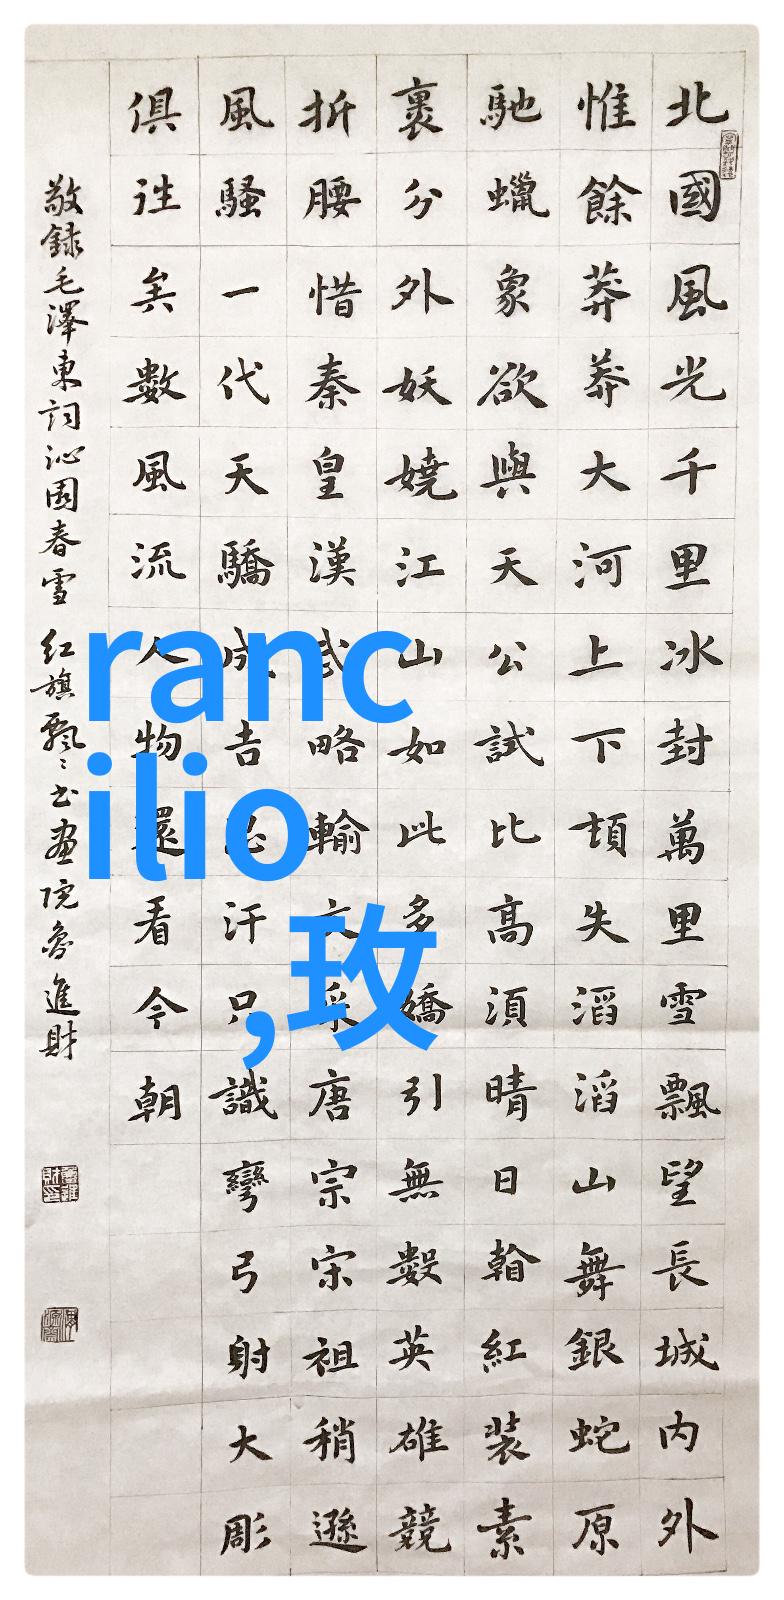 北國風光千里冰封萬里雪飄望長城内外
惟餘莽莽大河上下頓失滔滔山舞銀蛇原
馳蠟象欲與天公試比高須晴日翰紅裝素
裹分外妖嬈江山如此多嬌引無數英雄競
折腰惜秦皇漢武略輸文采唐宗宋祖稍遜
風騷一代天驕成吉思汗只識彎弓射大彫
俱往矣數風流人物還看今朝
敬録毛澤東詞沁園春雪 红旗飄々书画院魯進財
ranc
ilio
,玫